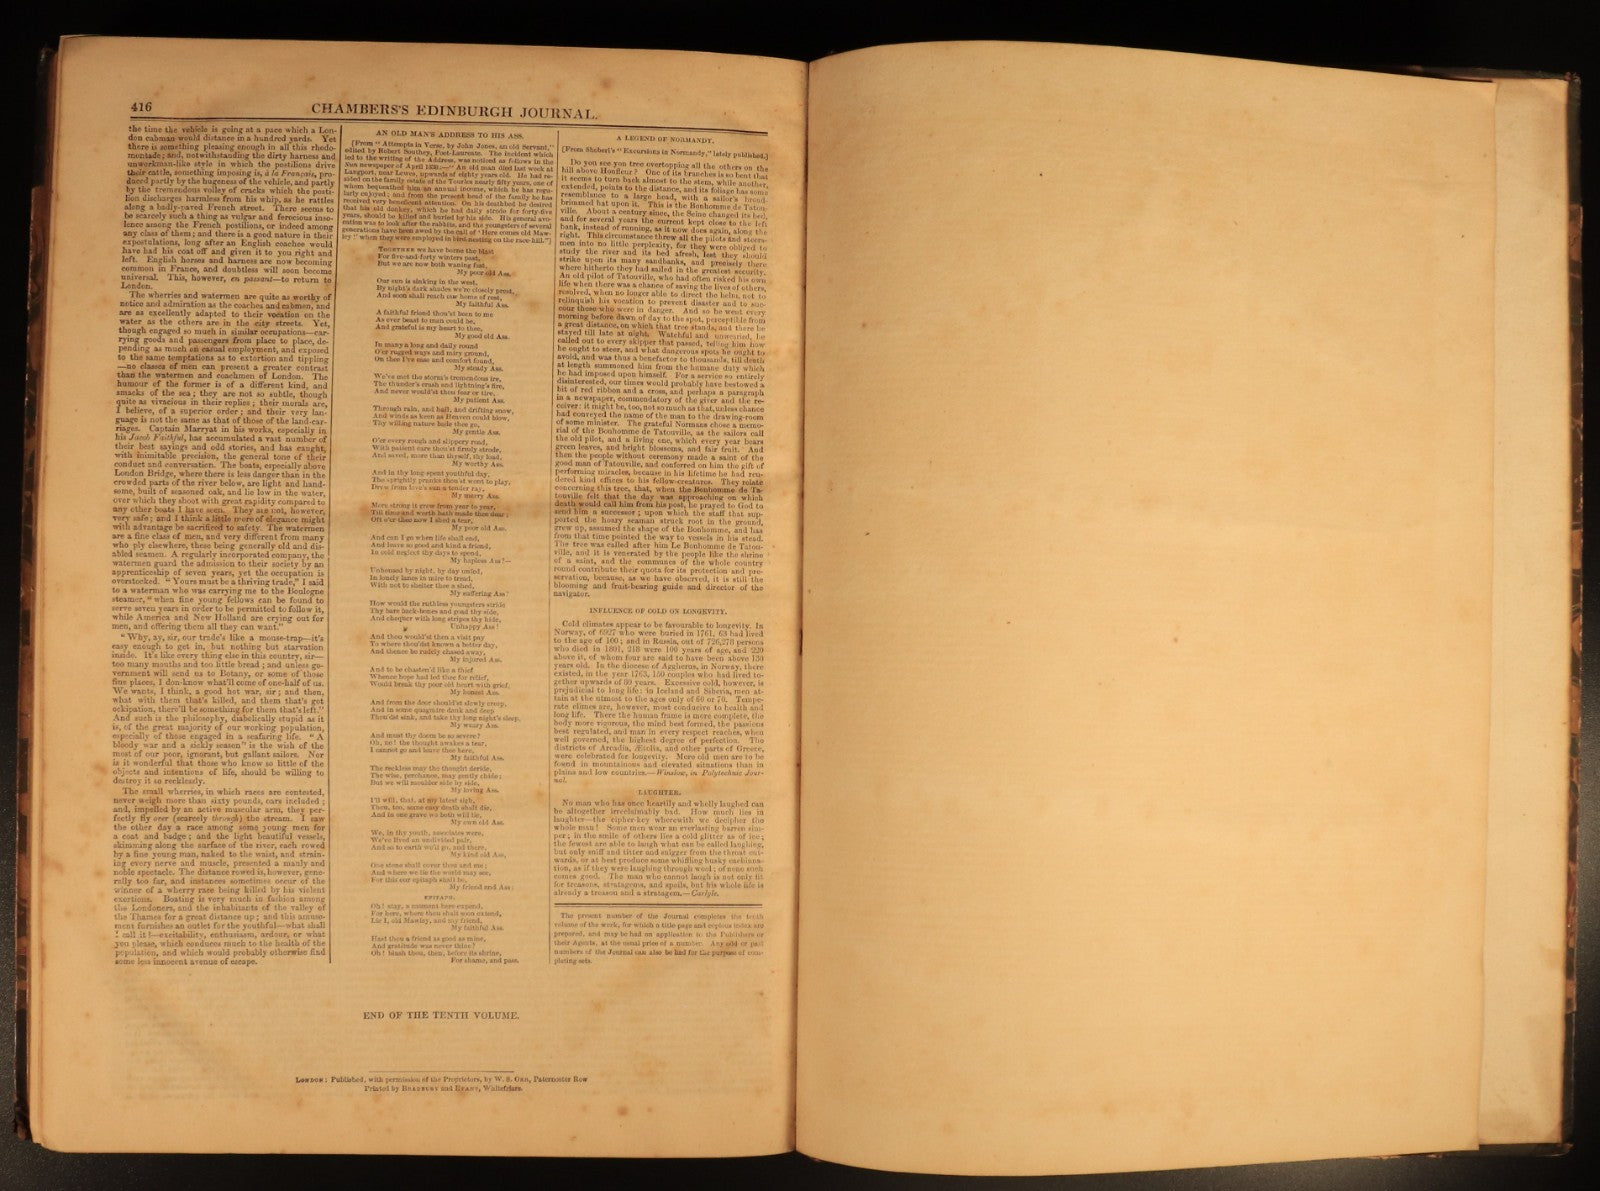 416
CHAMBERS'S EDINBURGH JOURNAL.
the time the vehicle is going at a pace which a Lon-
don cabman would distance in a hundred yards. Yet
there is something pleasing enough in all this rhodo-
montade; and, notwithstanding the dirty harness and
unworkman-like style in which the postilions drive
their cattle, something imposing is, à la Français, pro-
duced partly by the hugeness of the vehicle, and partly
by the tremendous volley of cracks which the posti-
lion discharges harmless from his whip, as he rattles
along a badly-paved French street. There seems to
be scarcely such a thing as vulgar and ferocious inso-
lence among the French postilions, or indeed among
any class of them; and there is a good nature in their
expostulations, long after an English coachee would
have had his coat off and given it to you right and
left. English horses and harness are now becoming
common in France, and doubtless will soon become
universal. This, however, en passant—to return to
London.
The wherries and watermen are quite as worthy of
notice and admiration as the coaches and cabmen, and
are as excellently adapted to their vocation on the
water as the others are in the city streets. Yet,
though engaged so much in similar occupations—car-
rying goods and passengers from place to place, de-
pending as much on casual employment, and exposed
to the same temptations as to extortion and tippling
—no classes of men can present a greater contrast
than the watermen and coachmen of London. The
humour of the former is of a different kind, and
smacks of the sea; they are not so subtle, though
quite as vivacious in their replies; their morals are,
I believe, of a superior order; and their very lan-
guage is not the same as that of those of the land-car-
riages. Captain Marryat in his works, especially in
his Jacob Faithful, has accumulated a vast number of
their best sayings and odd stories, and has caught,
with inimitable precision, the general tone of their
conduct and conversation. The boats, especially above
London Bridge, where there is less danger than in the
crowded parts of the river below, are light and hand-
some, built of seasoned oak, and lie low in the water,
over which they shoot with great rapidity compared to
any other boats I have seen. They are not, however,
very safe; and I think a little more of elegance might
with advantage be sacrificed to safety. The watermen
are a fine class of men, and very different from many
who ply elsewhere, these being generally old and dis-
abled seamen. A regularly incorporated company, the
watermen guard the admission to their society by an
apprenticeship of seven years, yet the occupation is
overstocked. "Yours must be a thriving trade," I said
to a waterman who was carrying me to the Boulogne
steamer, "when fine young fellows can be found to
serve seven years in order to be permitted to follow it,
while America and New Holland are crying out for
men, and offering them all they can want."
"Why, ay, sir, our trade's like a mouse-trap—it's
easy enough to get in, but nothing but starvation
inside. It's like every thing else in this country, sir—
too many mouths and too little bread; and unless go-
vernment will send us to Botany, or some of those
fine places, I don know what'll come of one-half of us.
We wants, I think, a good hot war, sir; and then,
what with them that's killed, and them that's got
ockipation, there'll be something for them that's left."
And such is the philosophy, diabolically stupid as it
is, of the great majority of our working population,
especially of those engaged in a seafaring life. "A
bloody war and a sickly season" is the wish of the
most of our poor, ignorant, but gallant sailors. Nor
is it wonderful that those who know so little of the
objects and intentions of life, should be willing to
destroy it so recklessly.
The small wherries, in which races are contested,
never weigh more than sixty pounds, oars included;
and, impelled by an active muscular arm, they per-
fectly fly over (scarcely through) the stream. I saw
the other day a race among some young men for
a coat and badge; and the light beautiful vessels,
skimming along the surface of the river, each rowed
by a fine young man, naked to the waist, and strain-
ing every nerve and muscle, presented a manly and
noble spectacle. The distance rowed is, however, gene-
rally too far, and instances sometimes occur of the
winner of a wherry race being killed by his violent
exertions. Boating is very much in fashion among
the Londoners, and the inhabitants of the valley of
the Thames for a great distance up; and this amuse-
ment furnishes an outlet for the youthful—what shall
I call it?—excitability, enthusiasm, ardour, or what
you please, which conduces much to the health of the
population, and which would probably otherwise find
some less innocent avenue of escape.
AN OLD MAN'S ADDRESS TO HIS ASS.
[From "Attempts in Verse, by John Jones, an old Servant,"
edited by Robert Southey, Poet-Laureate. The incident which
led to the writing of the Address, was noticed as follows in the
Sun newspaper of April 1830:—"An old man died last week at
Langport, near Lewes, upwards of eighty years old. He had re-
sided on the family estate of the Tourles nearly fifty years, one of
whom bequeathed him an annual income, which he has regu-
larly enjoyed; and from the present head of the family he has
received very beneficent attention. On his deathbed he desired
that his old donkey, which he had daily strode for forty-five
years, should be killed and buried by his side. His general avo-
cation was to look after the rabbits, and the youngsters of several
generations have been awed by the call of 'Here comes old Maw-
ley!' when they were employed in bird-nesting on the race-hill."]
TOGETHER we have borne the blast
For five-and-forty winters past,
But we are now both waning fast,
My poor old Ass.
Our sun is sinking in the west,
By night's dark shades we're closely prest,
And soon shall reach our home of rest,
My faithful Ass.
A faithful friend thou'st been to me
As ever beast to man could be,
And grateful is my heart to thee,
My good old Ass.
In many a long and daily round
O'er rugged ways and miry ground,
On thee I've ease and comfort found,
My steady Ass.
We've met the storm's tremendous ire,
The thunder's crash and lightning's fire,
And never would'st thou fear or tire,
My patient Ass.
Through rain, and hail, and drifting snow,
And winds as keen as Heaven could blow,
Thy willing nature bade thee go,
My gentle Ass.
O'er every rough and slippery road,
With patient care thou'st firmly strode,
And saved, more than thyself, thy load,
My worthy Ass.
And in thy long-spent youthful day,
The sprightly pranks thou'st went to play,
Drew from love's sun a tender ray,
My merry Ass.
More strong it grew from year to year,
Till time and worth hath made thee dear;
Oft o'er thee now I shed a tear,
My poor old Ass.
And can I go when life shall end,
And leave so good and kind a friend,
In cold neglect thy days to spend,
My hapless Ass?—
Unhoused by night, by day unfed,
In lonely lanes in mire to tread,
With not to shelter thee a shed,
My suffering Ass?
How would the ruthless youngsters stride
Thy bare back-bones and goad thy side,
And chequer with long stripes thy hide,
Unhappy Ass!
And thou would'st then a visit pay
To where thou'dst known a better day,
And thence be rudely chased away,
My injured Ass.
And to be chasten'd like a thief
Whence hope had led thee for relief,
Would break thy poor old heart with grief,
My honest Ass.
And from the door should'st slowly creep,
And in some quagmire dank and deep
Thou'dst sink, and take thy long night's sleep,
My weary Ass.
And must thy doom be so severe?
Oh, no! the thought awakes a tear,
I cannot go and leave thee here,
My faithful Ass.
The reckless may the thought deride,
The wise, perchance, may gently chide;
But we will moulder side by side,
My loving Ass.
I'll will, that, at my latest sigh,
Then, too, some easy death shalt die,
And in one grave we both will lie,
My own old Ass.
We, in thy youth, associates were,
We've lived an undivided pair,
And so to earth we'll go, and there,
My kind old Ass,
One stone shall cover thou and me;
And where we lie the world may see,
For this our epitaph shall be,
My friend and Ass:
EPITAPH.
Oh! stay, a moment here expend,
For here, where thou shalt soon extend,
Lie I, old Mawley, and my friend,
My faithful Ass.
Hast thou a friend as good as mine,
And gratitude was never thine?
Oh! blush thou, then, before its shrine,
For shame, and pass.
A LEGEND OF NORMANDY.
[From Shoberl's "Excursions in Normandy," lately published.]
Do you see yon tree overtopping all the others on the
hill above Honfleur? One of its branches is so bent that
it seems to turn back almost to the stem, while another,
extended, points to the distance, and its foliage has some
resemblance to a large head, with a sailor's broad-
brimmed hat upon it. This is the Bonhomme de Tatou-
ville. About a century since, the Seine changed its bed,
and for several years the current kept close to the left
bank, instead of running, as it now does again, along the
right. This circumstance threw all the pilots and steers-
men into no little perplexity, for they were obliged to
study the river and its bed afresh, lest they should
strike upon its many sandbanks, and precisely there
where hitherto they had sailed in the greatest security.
An old pilot of Tatouville, who had often risked his own
life when there was a chance of saving the lives of others,
resolved, when no longer able to direct the helm, not to
relinquish his vocation to prevent disaster and to suc-
cour those who were in danger. And so he went every
morning before dawn of day to the spot, perceptible from
a great distance, on which that tree stands, and there he
stayed till late at night. Watchful and unwearied, he
called out to every skipper that passed, telling him how
he ought to steer, and what dangerous spots he ought to
avoid, and was thus a benefactor to thousands, till death
at length summoned him from the humane duty which
he had imposed upon himself. For a service so entirely
disinterested, our times would probably have bestowed a
bit of red ribbon and a cross, and perhaps a paragraph
in a newspaper, commendatory of the giver and the re-
ceiver: it might be, too, not so much as that, unless chance
had conveyed the name of the man to the drawing-room
of some minister. The grateful Normans chose a memo-
rial of the Bonhomme de Tatouville, as the sailors call
the old pilot, and a living one, which every year bears
green leaves, and bright blossoms, and fair fruit. And
then the people without ceremony made a saint of the
good man of Tatouville, and conferred on him the gift of
performing miracles, because in his lifetime he had ren-
dered kind offices to his fellow-creatures. They relate
concerning this tree, that, when the Bonhomme de Ta-
touville felt that the day was approaching on which
death would call him from his post, he prayed to God to
send him a successor; upon which the staff that sup-
ported the hoary seaman struck root in the ground,
grew up, assumed the shape of the Bonhomme, and has
from that time pointed the way to vessels in his stead.
The tree was called after him Le Bonhomme de Tatou-
ville, and it is venerated by the people like the shrine
of a saint, and the communes of the whole country
round contribute their quota for its protection and pre-
servation, because, as we have observed, it is still the
blooming and fruit-bearing guide and director of the
navigator.
INFLUENCE OF COLD ON LONGEVITY.
Cold climates appear to be favourable to longevity. In
Norway, of 6927 who were buried in 1761, 63 had lived
to the age of 100; and in Russia, out of 726,278 persons
who died in 1801, 218 were 100 years of age, and 220
above it, of whom four are said to have been above 130
years old. In the diocese of Aggherus, in Norway, there
existed, in the year 1763, 150 couples who had lived to-
gether upwards of 80 years. Excessive cold, however, is
prejudicial to long life: in Iceland and Siberia, men at-
tain at the utmost to the ages only of 60 or 70. Tempe-
rate climes are, however, most conducive to health and
long life. There the human frame is more complete, the
body more vigorous, the mind best formed, the passions
best regulated, and man in every respect reaches, when
well governed, the highest degree of perfection. The
districts of Arcadia, Ætolia, and other parts of Greece,
were celebrated for longevity. More old men are to be
found in mountainous and elevated situations than in
plains and low countries.—Winslow, in Polytechnic Jour-
nal.
LAUGHTER.
No man who has once heartily and wholly laughed can
be altogether irreclaimably bad. How much lies in
laughter—the cipher-key wherewith we decipher the
whole man! Some men wear an everlasting barren sim-
per; in the smile of others lies a cold glitter as of ice;
the fewest are able to laugh what can be called laughing,
but only sniff and titter and snigger from the throat out-
wards, or at best produce some whiffling husky cachinna-
tion, as if they were laughing through wool; of none such
comes good. The man who cannot laugh is not only fit
for treasons, stratagems, and spoils, but his whole life is
already a treason and a stratagem.—Carlyle.
The present number of the Journal completes the tenth
volume of the work, for which a title page and copious index are
prepared, and may be had on application to the Publishers or
their Agents, at the usual price of a number. Any odd or past
numbers of the Journal can also be had for the purpose of com-
pleting sets.
END OF THE TENTH VOLUME.
LONDON: Published, with permission of the Proprietors, by W. S. ORR, Paternoster Row
Printed by BRADBURY and EVANS, Whitefriars.